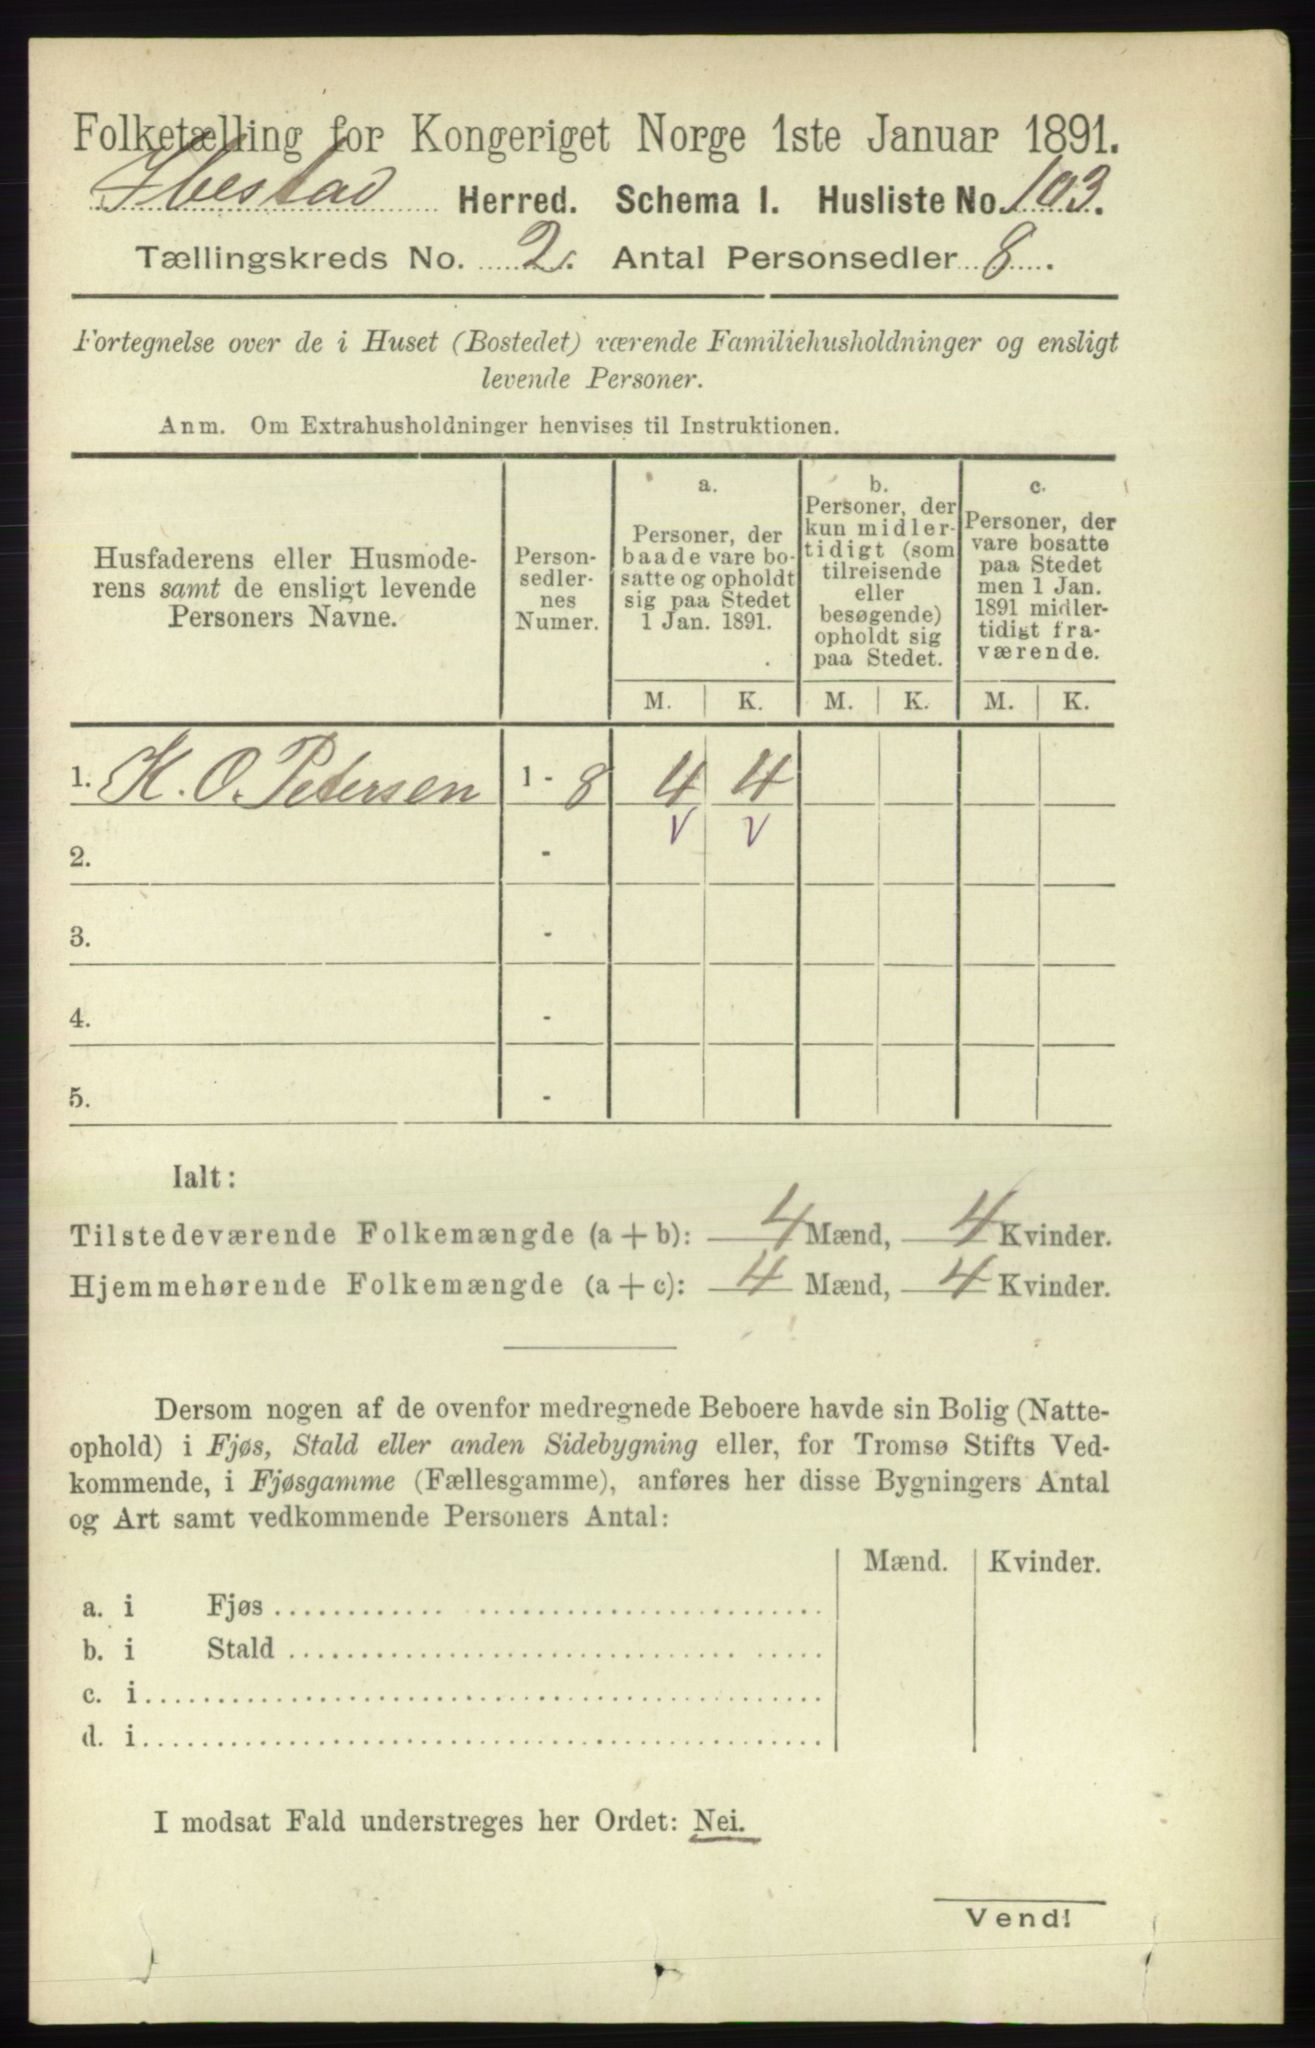 Folketælling for Kongeriget Norge 1ste Januar 1891.
Ibestad Herred. Schema I. Husliste No 103.
Tællingskreds No. 2. Antal Personsedler 8.
Fortegnelse over de i Huset (Bostedet) værende Familiehusholdninger og ensligt
levende Personer.
Anm. Om Extrahusholdninger henvises til Instruktionen.
Husfaderens eller Husmode-
rens samt de ensligt levende
Personers Navne.
Person-
sedler-
nes
Numer.
a.
Personer, der
baade vare bo-
satte og opholdt
sig paa Stedet
1 Jan. 1891.
b.
Personer, der
kun midler-
tidigt (som
tilreisende
eller
besøgende)
opholdt sig
paa Stedet.
c.
Personer, der
vare bosatte
paa Stedet
men 1 Jan.
1891 midler-
tidigt fra-
værende.
M. K. M. K. M. K.
1. K. O. Petersen 1 - 8 4 4
V V
2. -
3. -
4. -
5. -
Ialt:
Tilstedeværende Folkemængde (a + b): 4 Mænd, 4 Kvinder.
Hjemmehørende Folkemængde (a + c): 4 Mænd, 4 Kvinder.
Dersom nogen af de ovenfor medregnede Beboere havde sin Bolig (Natte-
ophold) i Fjøs, Stald eller anden Sidebygning eller, for Tromsø Stifts Ved-
kommende, i Fjøsgamme (Fællesgamme), anføres her disse Bygningers Antal
og Art samt vedkommende Personers Antal:
Mænd. Kvinder.
a. i Fjøs
b. i Stald
c. i
d. i
I modsat Fald understreges her Ordet: Nei.
Vend!